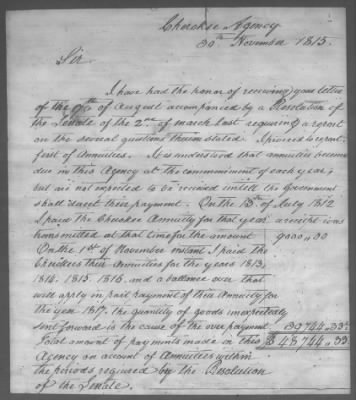 Cherokee Agency
30th November 1815.
Sir
I have had the honor of receiving your letter
of the 17th of August accompanied by a Resolution of
the Senate of the 2nd of March last requiring a report
on the several questions therein stated. I proceed to report,
first of Annuities. It is understood that annuities become
due in this Agency at the commencement of each year,
but are not expected to be received untill the Government
shall direct their payment. On the 13th of July 1812
I paid the Cherokee Annuity for that year. a receipt was
transmitted at that time for the amount 9000 .. 00
On the 1st of November instant I paid the
Cherokees their Annuities for the years 1813,
1814. 1815. 1816. and a ballance over that
will apply in part payment of their Annuity for
the year 1817. the quantity of goods inexpectedly
sent forward is the cause of the over payment. 39744 .. 33
Total amount of payments made in this $48744 .. 33
Agency on account of Annuities within
the periods required by the Resolution
of the Senate.